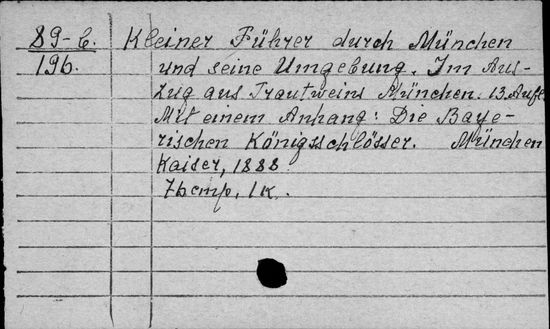 89-6. Kleiner Führer durch München
196. und seine Umgebung. Im Aus-
zug aus Trautweins München. 13. Aufl.
Mit einem Anhang: Die Baye-
rischen Königsschlösser. München
Kaiser, 1888
1k.